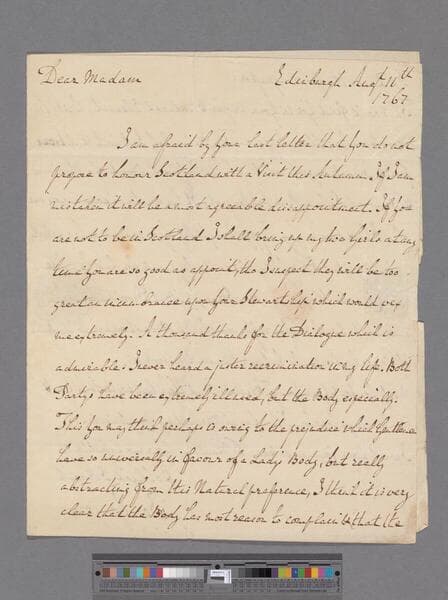 Dear Madam
Edinburgh Augt. 11th
1767
I am afraid by your last letter that you do not
propose to honour Scotland with a Visit this Autumn. If I am
mistaken it will be a most agreeable disappointment. If you
are not to be in Scotland I shall bring up my two Girls at any
time you are so good as appoint, tho I suspect they will be too
great an incumbrance upon your Stewartship which would vex
me extremely. A thousand thanks for the Dialogue which is
admirable. I never heard a juster recrimination in my life. Both
Partys have been extremely ill used, but the Body especially.
This you may think perhaps is owing to the prejudice which Gentlemen
have so universally in favour of a Lady's Body, but really
abstracting from this Natural preference, I think it is very
clear that the Body has most reason to complain & that the